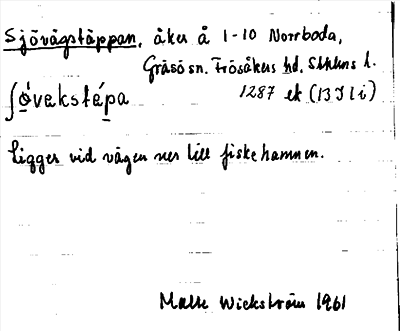 Sjövägstäppan, åker å 1-10 Norrboda,
Gräsö sn. Frösåkers hd. Sthlms l.
ʃóvekstépa 1287 ek (13I1i)
Ligger vid vägen ner till fiskehamnen.
Malte Wickström 1961